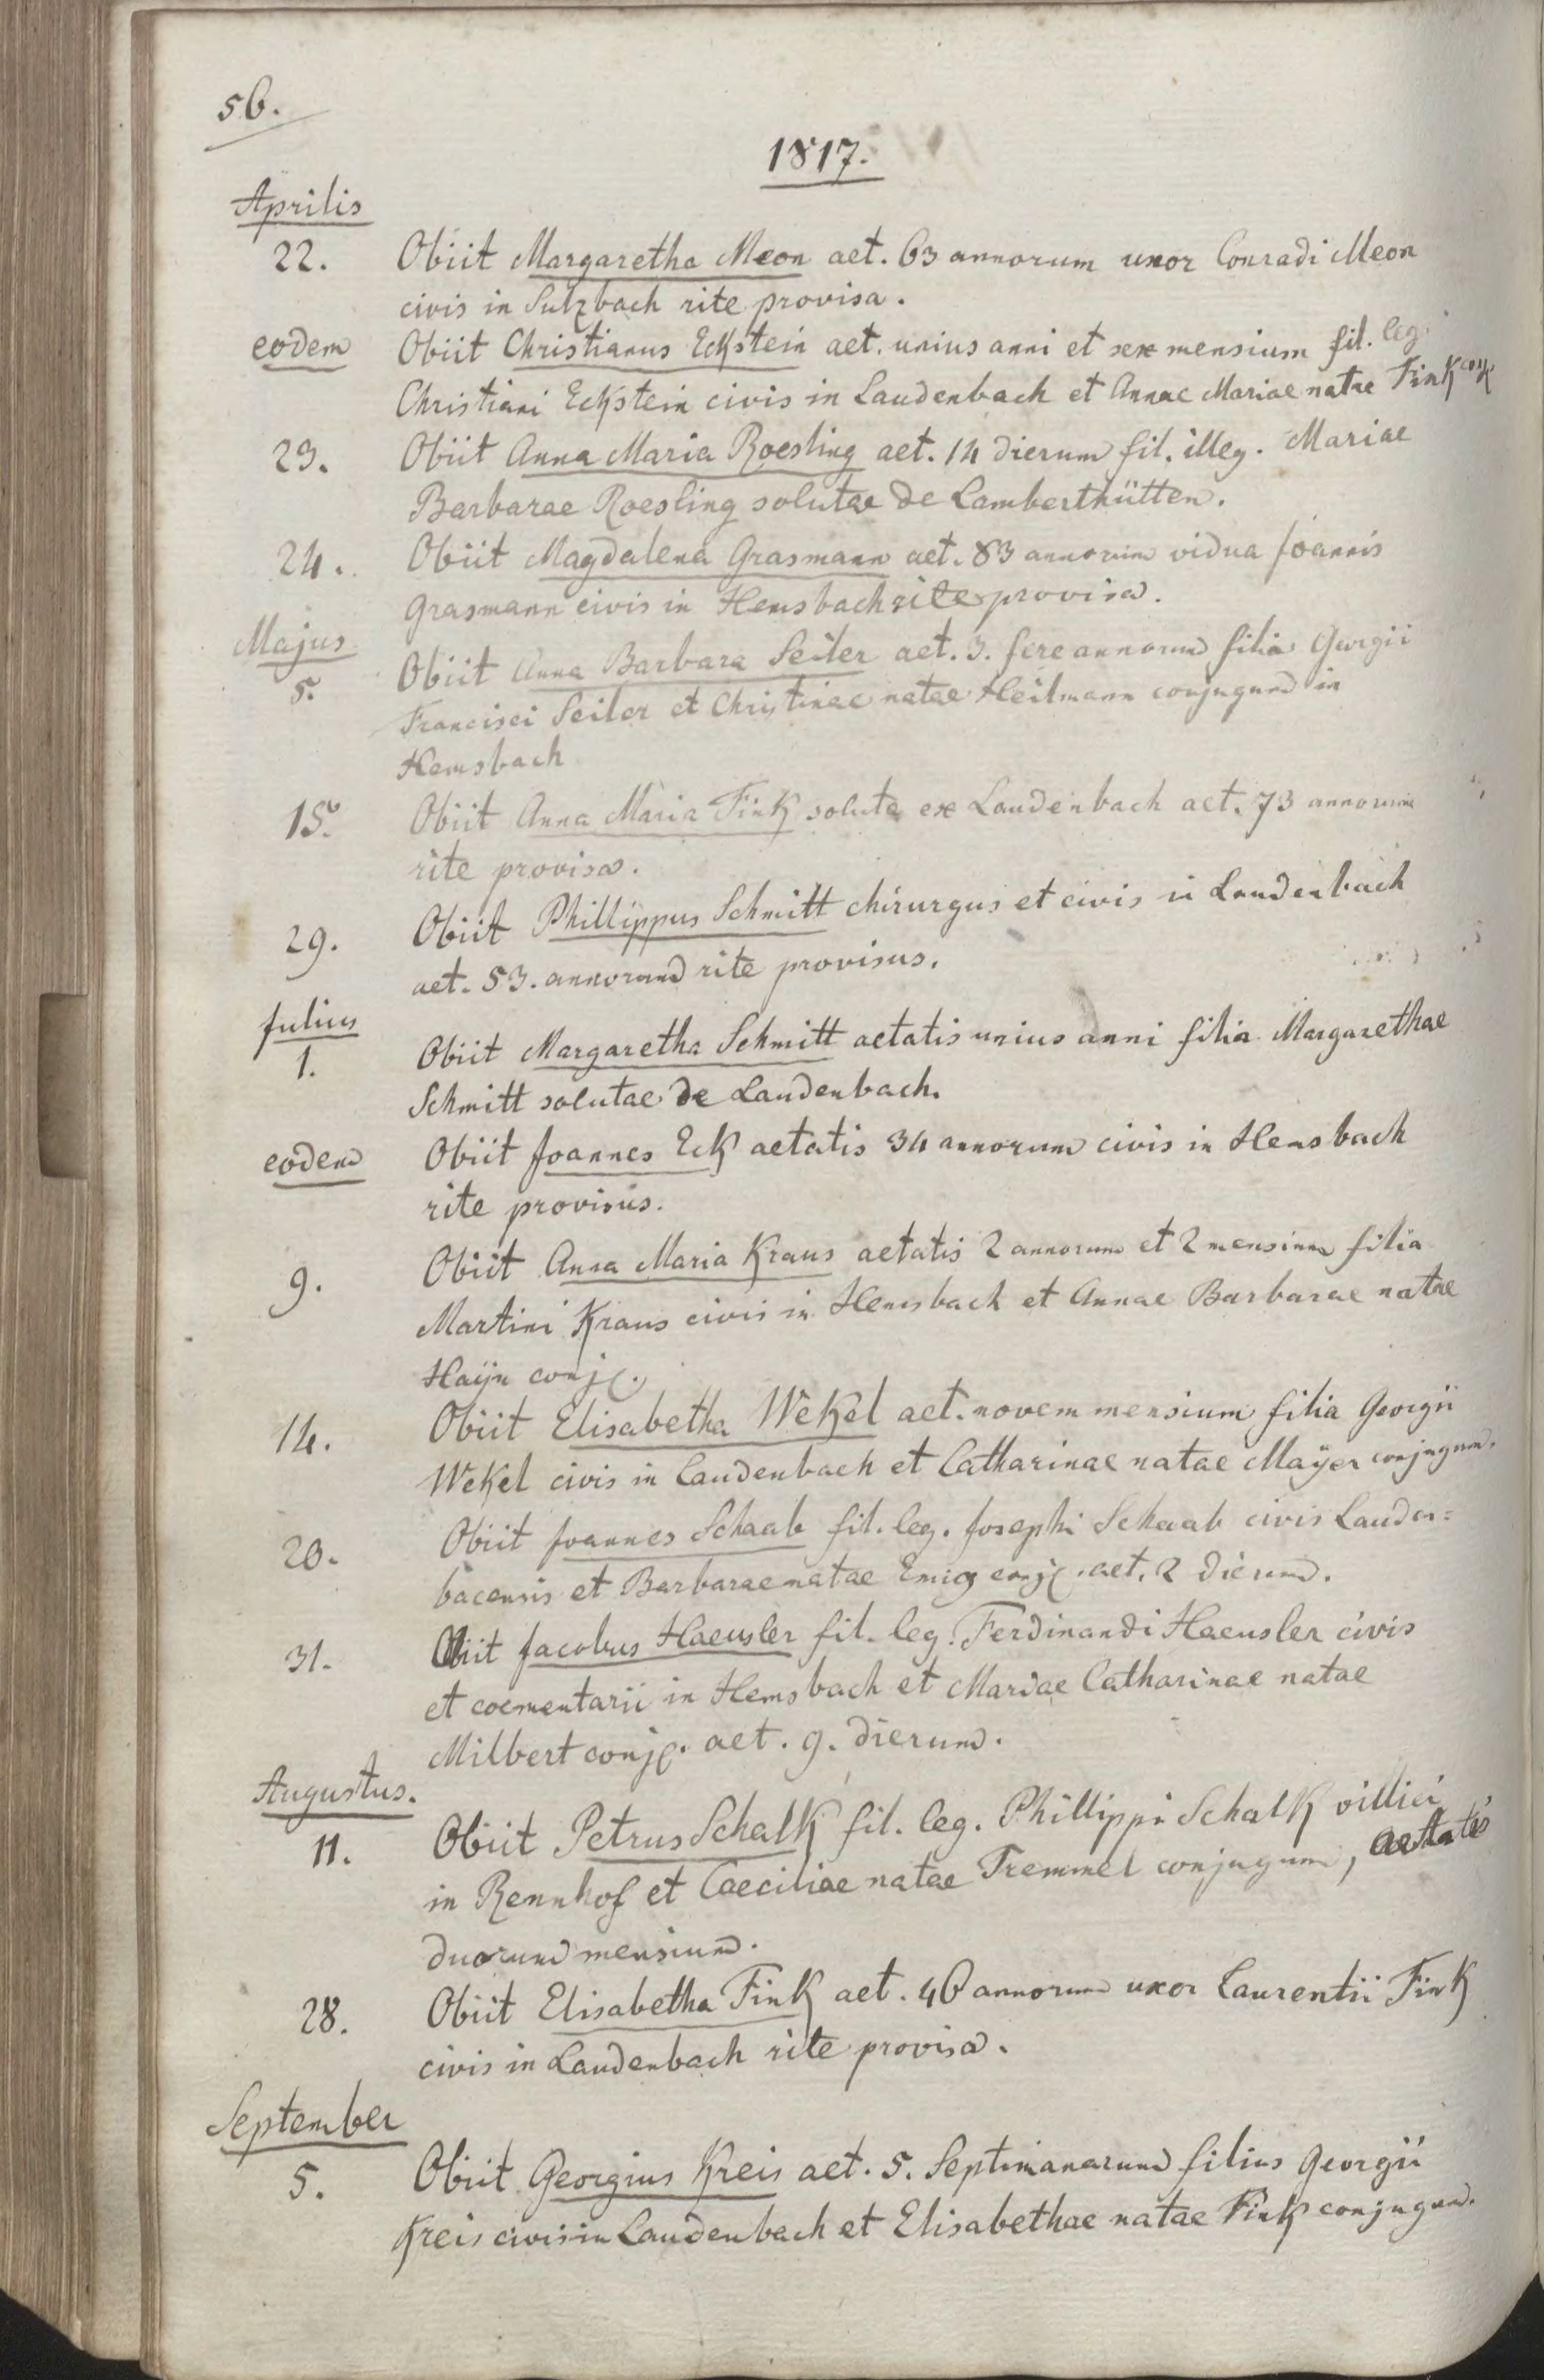 56.
1817.
Aprilis
22. Obiit Margaretha Meon aet. 63 annorum uxor Conradi Meon
civis in Sulzbach rite provisa.
eodem Obiit Christianus Eckstein aet. unius anni et sex mensium fil. leg.
Christiani Eckstein civis in Laudenbach et Annae Mariae natae Fink conj.
23. Obiit Anna Maria Roesling aet. 14 dierum fil. illeg. Mariae
Barbarae Roesling solutae de Lamberthütten.
24. Obiit Magdalena Grasmann aet. 83 annorum vidua Joannis
Grasmann civis in Hemsbach rite provisa.
Majus
5. Obiit Anna Barbara Seiler aet. 3. fere annorum filia Georgii
Francisci Seiler et Christinae natae Heilmann conjugum in
Hemsbach
15. Obiit Anna Maria Fink soluta ex Laudenbach aet. 73 annorum
rite provisa.
29. Obiit Phillippus Schmitt chirurgus et civis in Laudenbach
aet. 53. annorum rite provisus.
Julius
1. Obiit Margaretha Schmitt aetatis unius anni filia Margarethae
Schmitt solutae de Laudenbach.
eodem Obiit Joannes Eck aetatis 34 annorum civis in Hemsbach
rite provisus.
9. Obiit Anna Maria Kraus aetatis 2 annorum et 2 mensium filia
Martini Kraus civis in Hemsbach et Annae Barbarae natae
Haÿn conj.
14. Obiit Elisabetha Wekel aet. novem mensium filia Georgii
Wekel civis in Laudenbach et Catharinae natae Maÿer conjugum.
20. Obiit Joannes Schaab fil. leg. Josephi Schaab civis Lauden=
bacensis et Barbarae natae Emig conj. aet. 2 dierum.
31. Obiit Jacobus Haeusler fil. leg. Ferdinandi Haeusler civis
et coementarii in Hemsbach et Mariae Catharinae natae
Milbert conj. aet. 9. dierum.
Augustus.
11. Obiit Petrus Schalk fil. leg. Phillippi Schalk villici
in Rennhof et Caeciliae natae Tremmel conjugum, aetatis
duorum mensium.
28. Obiit Elisabetha Fink aet. 46 annorum uxor Laurentii Fink
civis in Laudenbach rite provisa.
September
5. Obiit Georgius Kreis aet. 5. Septimanarum filius Georgii
Kreis civis in Laudenbach et Elisabethae natae Fink conjugum.